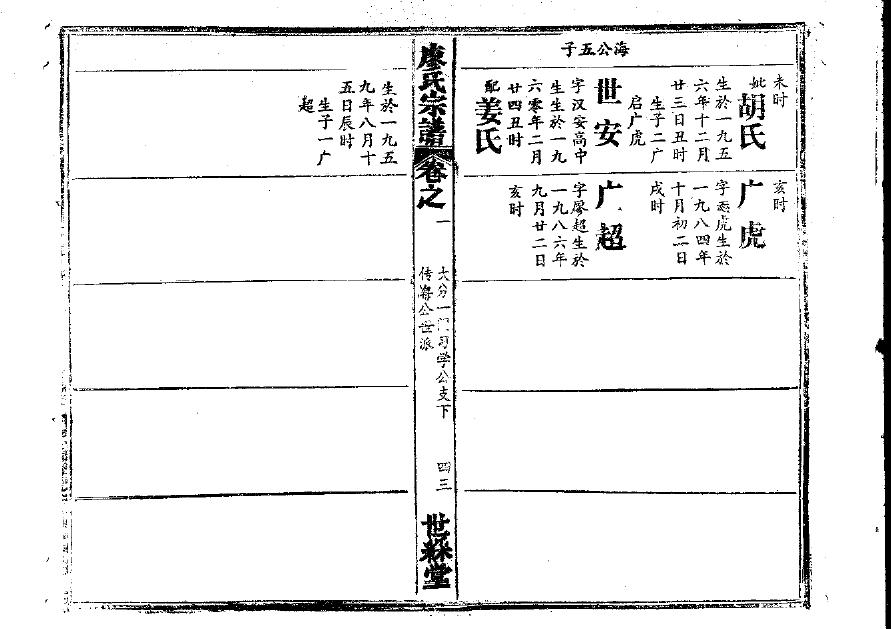 海公五子
未时
妣胡氏
生於一九五
六年十二月
廿三日丑时
生子二广
启广虎
世安
字汉安高中
生生於一九
六零年二月
廿四丑时
配姜氏
亥时
广虎
字虎生於
一九八四年
十月初二日
戌时
广超
字廖超生於
一九八六年
九月廿二日
亥时
廖氏宗譜卷之一
大分一门习学公支下
传海公世派
四三
世綵堂
生於一九五
九年八月十
五日辰时
生子一广
超